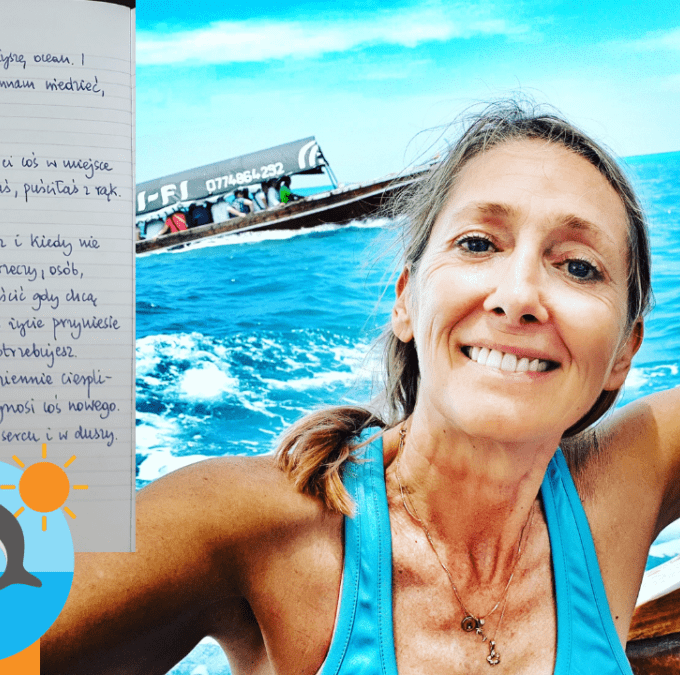 ocean. I
wiedzieć,
ci coś w miejsce
puściłaś z rąk.
i kiedy nie
rzeczy, osób,
gdy chcą
życie przyniesie
otrzebujesz.
cierpli-
coś nowego.
sercu i w duszy.
I-FI 0774864292